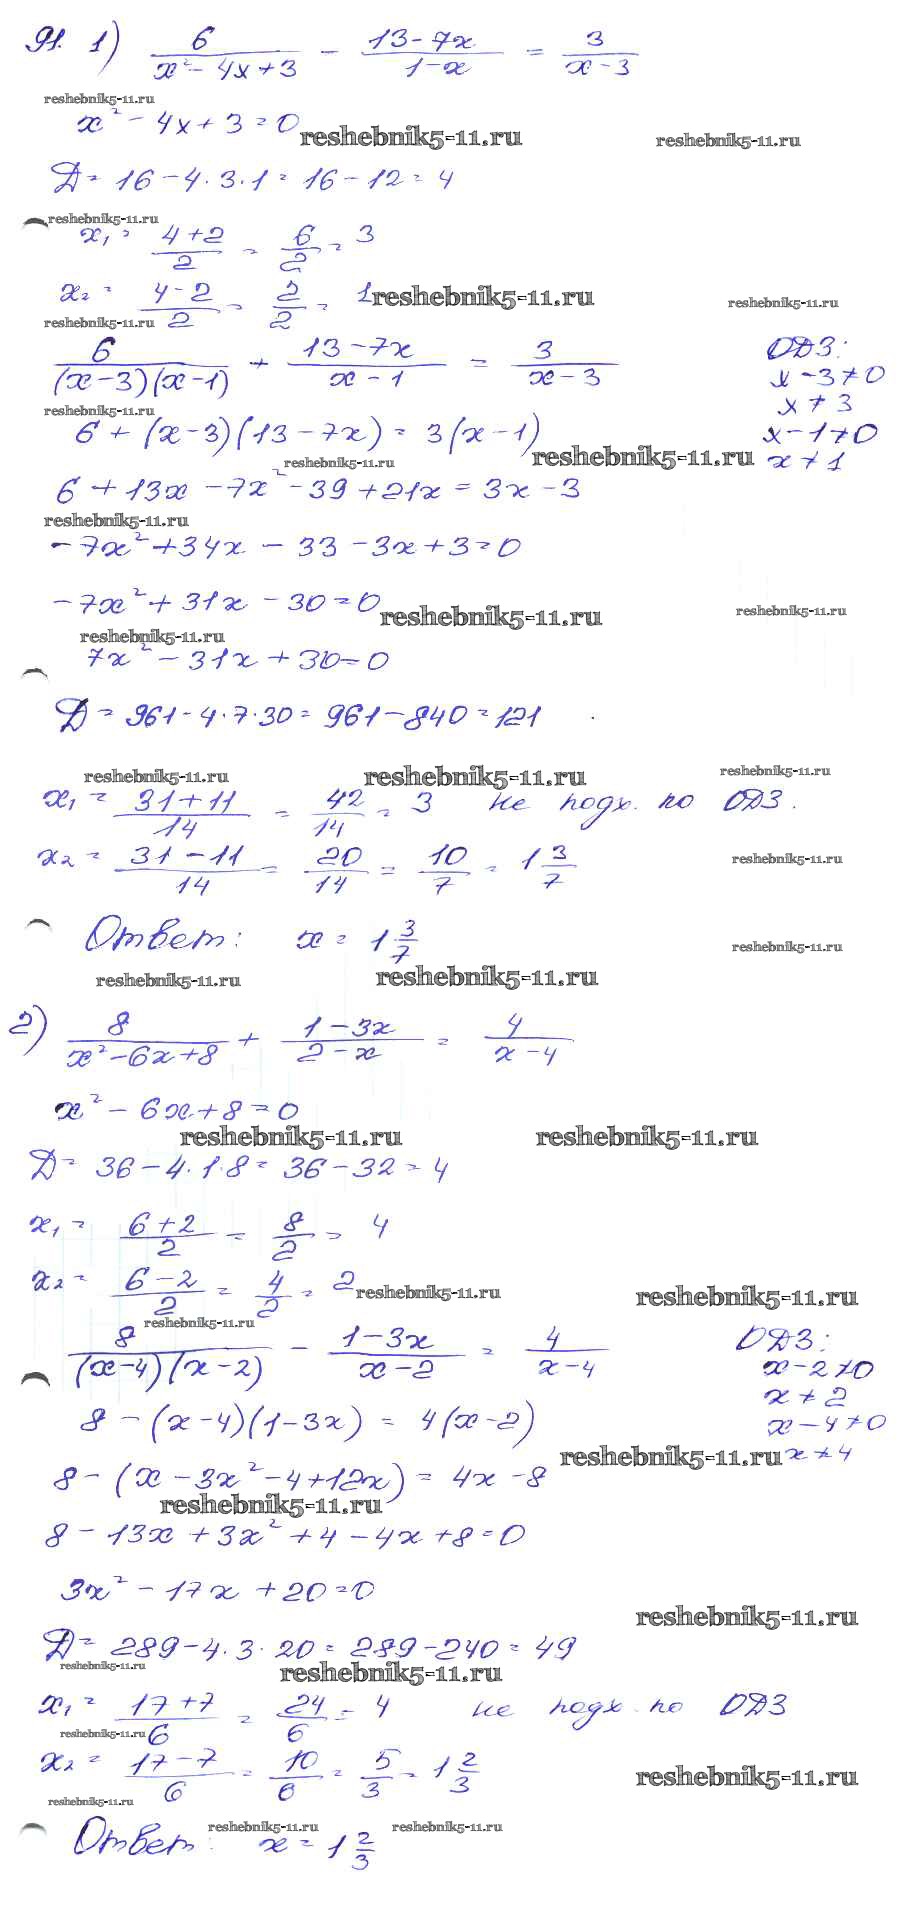 91. 1) 6/(x² - 4x + 3) - (13 - 7x)/(1 - x) = 3/(x - 3)
reshebnik5-11.ru
x² - 4x + 3 = 0 reshebnik5-11.ru reshebnik5-11.ru
Д = 16 - 4 · 3 · 1 = 16 - 12 = 4
reshebnik5-11.ru
x₁ = (4 + 2)/2 = 6/2 = 3
x₂ = (4 - 2)/2 = 2/2 = 1 reshebnik5-11.ru reshebnik5-11.ru
reshebnik5-11.ru
6/((x - 3)(x - 1)) + (13 - 7x)/(x - 1) = 3/(x - 3) ОДЗ:
x - 3 ≠ 0
x ≠ 3
reshebnik5-11.ru
6 + (x - 3)(13 - 7x) = 3(x - 1) x - 1 ≠ 0
reshebnik5-11.ru reshebnik5-11.ru x ≠ 1
6 + 13x - 7x² - 39 + 21x = 3x - 3
reshebnik5-11.ru
-7x² + 34x - 33 - 3x + 3 = 0
-7x² + 31x - 30 = 0 reshebnik5-11.ru reshebnik5-11.ru
reshebnik5-11.ru
7x² - 31x + 30 = 0
Д = 961 - 4 · 7 · 30 = 961 - 840 = 121
reshebnik5-11.ru reshebnik5-11.ru reshebnik5-11.ru
x₁ = (31 + 11)/14 = 42/14 = 3 не подх. по ОДЗ.
x₂ = (31 - 11)/14 = 20/14 = 10/7 = 1 3/7 reshebnik5-11.ru
Ответ: x = 1 3/7 reshebnik5-11.ru
reshebnik5-11.ru reshebnik5-11.ru
2) 8/(x² - 6x + 8) + (1 - 3x)/(2 - x) = 4/(x - 4)
x² - 6x + 8 = 0
reshebnik5-11.ru reshebnik5-11.ru
Д = 36 - 4 · 1 · 8 = 36 - 32 = 4
x₁ = (6 + 2)/2 = 8/2 = 4
x₂ = (6 - 2)/2 = 4/2 = 2 reshebnik5-11.ru reshebnik5-11.ru
reshebnik5-11.ru
8/((x - 4)(x - 2)) - (1 - 3x)/(x - 2) = 4/(x - 4) ОДЗ:
x - 2 ≠ 0
x ≠ 2
8 - (x - 4)(1 - 3x) = 4(x - 2) x - 4 ≠ 0
reshebnik5-11.ru x ≠ 4
8 - (x - 3x² - 4 + 12x) = 4x - 8
reshebnik5-11.ru
8 - 13x + 3x² + 4 - 4x + 8 = 0
3x² - 17x + 20 = 0
reshebnik5-11.ru
Д = 289 - 4 · 3 · 20 = 289 - 240 = 49
reshebnik5-11.ru reshebnik5-11.ru
x₁ = (17 + 7)/6 = 24/6 = 4 не подх. по ОДЗ
reshebnik5-11.ru
x₂ = (17 - 7)/6 = 10/6 = 5/3 = 1 2/3 reshebnik5-11.ru
reshebnik5-11.ru
reshebnik5-11.ru reshebnik5-11.ru
Ответ: x = 1 2/3